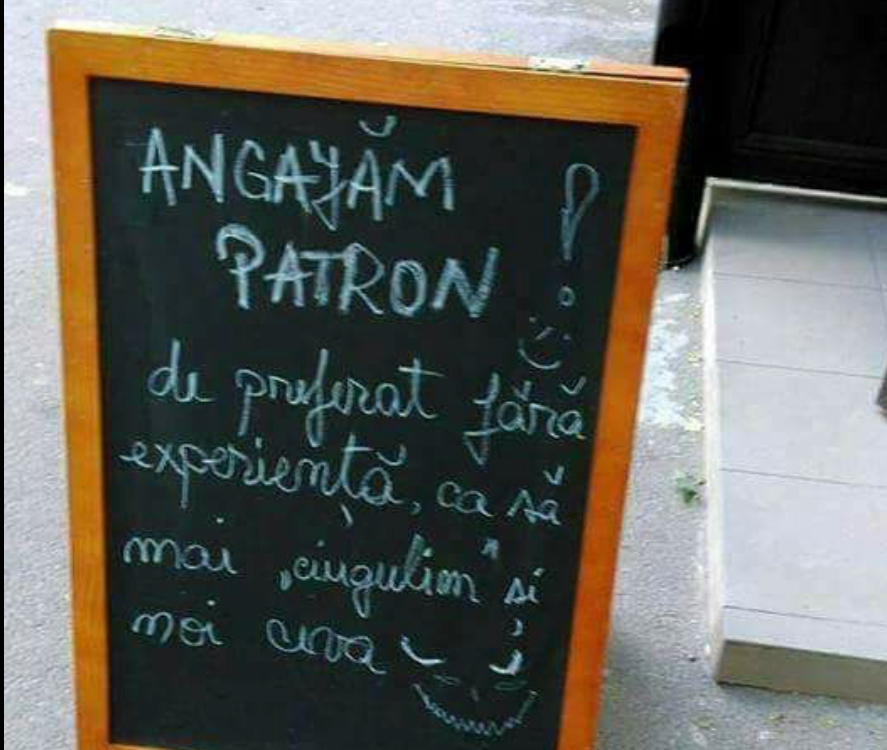 ANGAJĂM !
PATRON
de preferat fără
experiență, ca să
mai „ciugulim" și
noi ceva